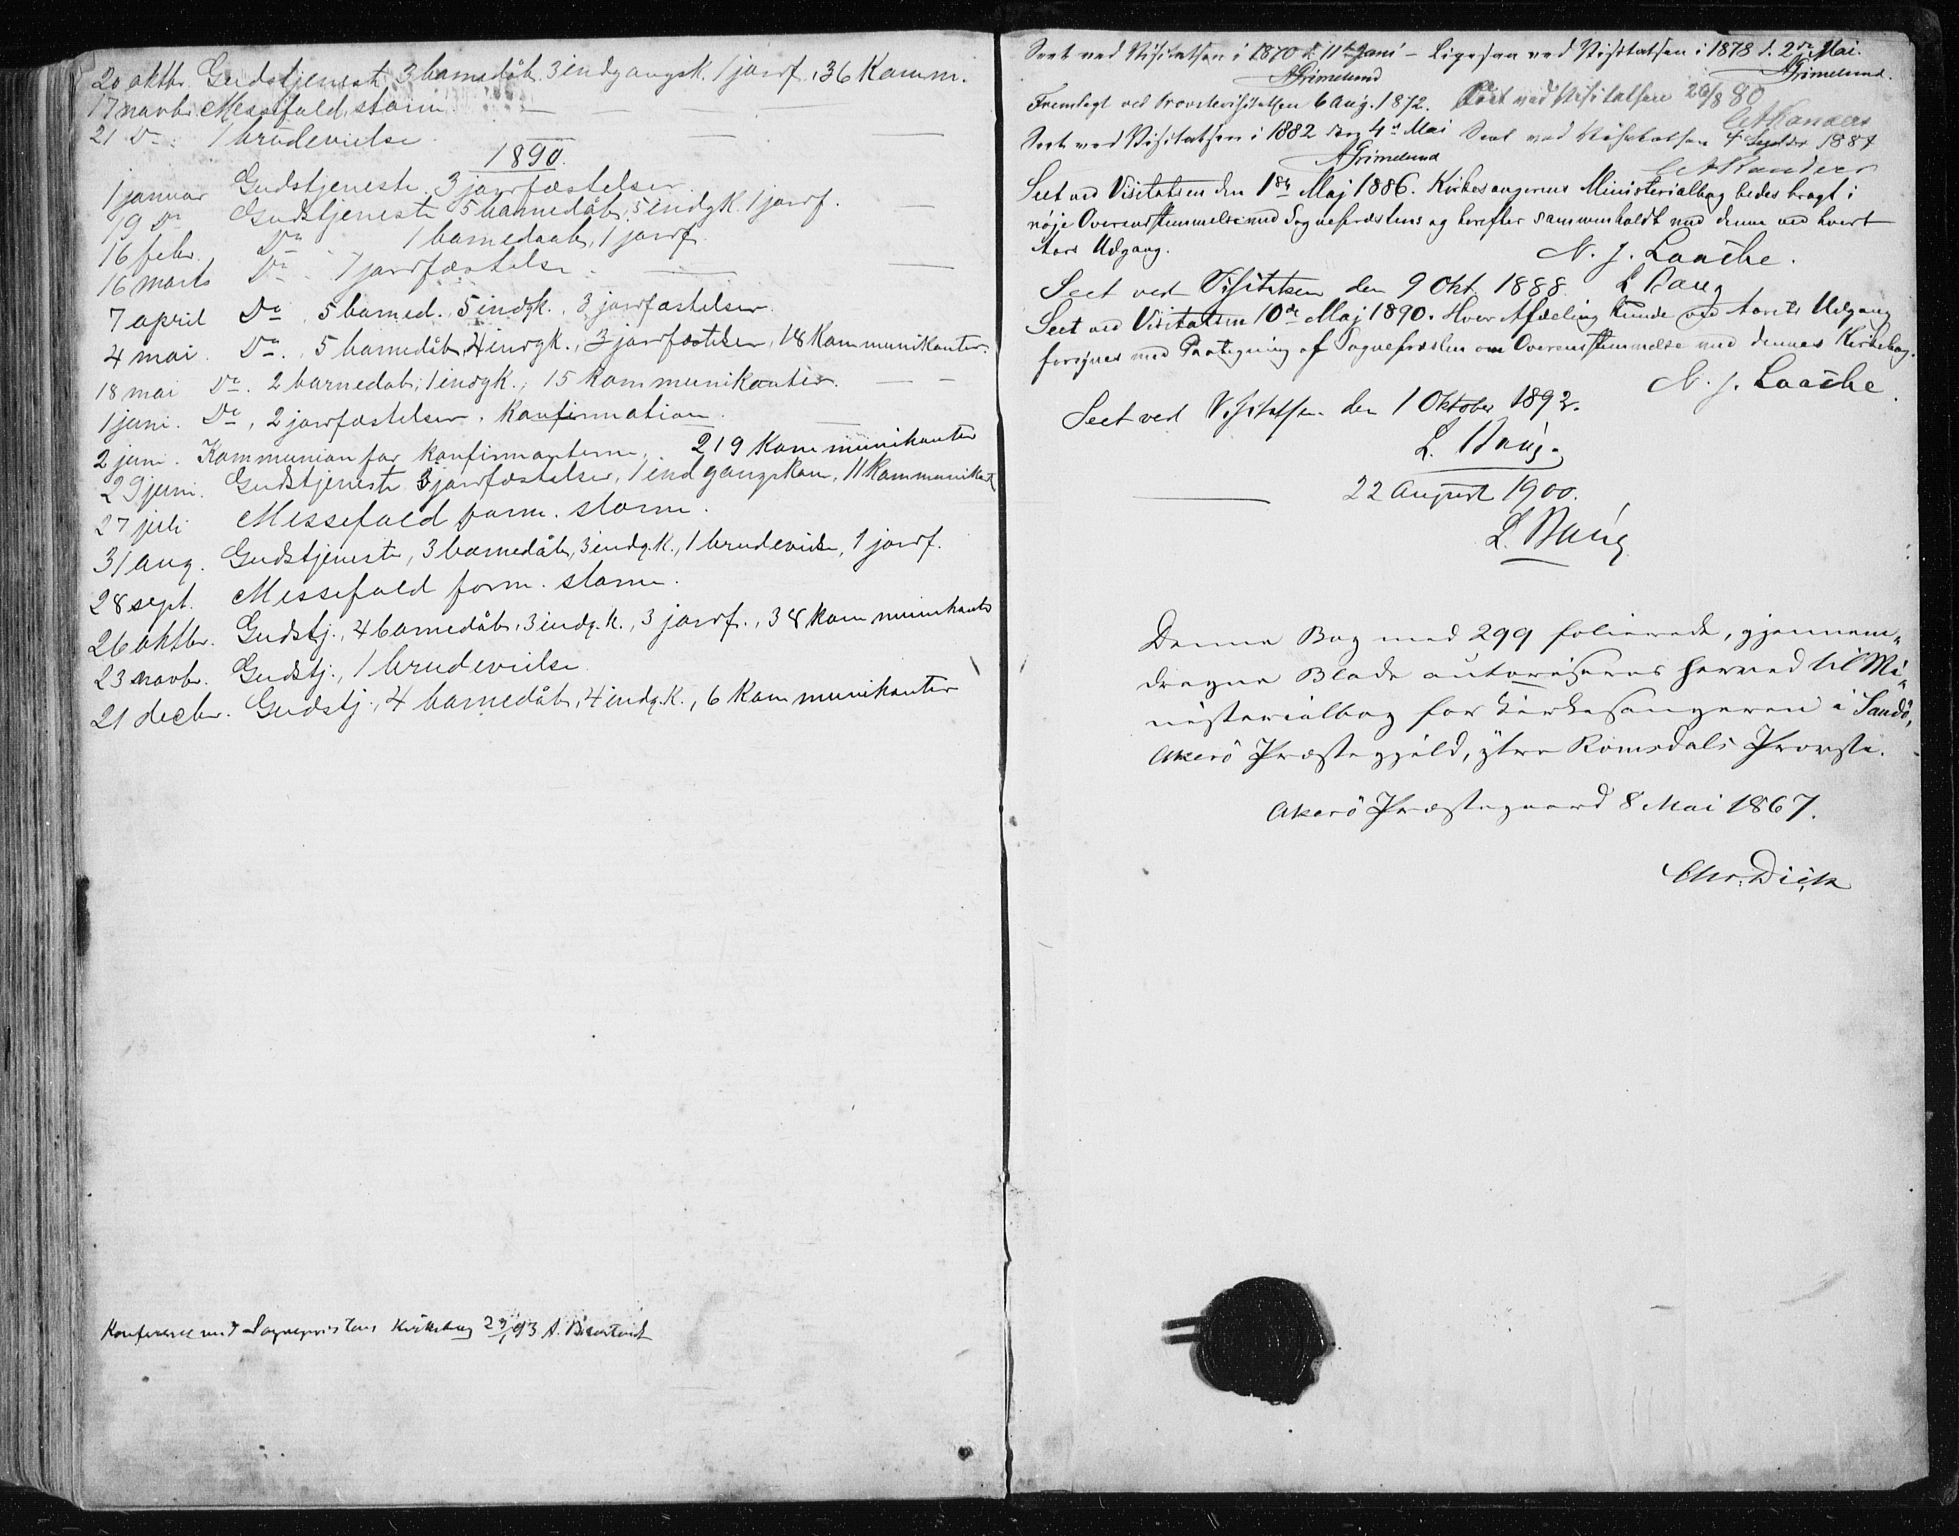 20 oktbr. Gudstjeneste 3 barnedåb 3 indgangsk. 1 jordf. 36 Komm.
17 novbr. Messefald storm
21 Do 1 brudevielse
1890.
1 januar Gudstjeneste. 3 jordfæstelser.
19 Do Gudstjeneste 5 barnedåb, 5 indgk. 1 jordf.
16 febr. Do 1 barnedaab, 1 jordf.
16 marts Do 1 jordfæstelse.
7 april Do, 5 barned., 5 indgk., 3 jordfæstelser.
4 mai. Do., 5 barnedåb, 4 indgk., 3 jordfæstelser, 18 Kommunikanter.
18 mai Do. 2 barnedåb, 1 indgk., 15 kommunikanter.
1 juni. Do, 2 jordfæstelser. Konfirmation.
2 juni. Kommunion for konfirmanterne. 219 Kommunikanter
29 juni. Gudstjeneste 3 jordfæstelser, 1 indgangskon, 11 Kommunikant
27 juli Messefald form. storm.
31 aug. Gudstjeneste, 3 barnedåb, 3 indg.K., 1 brudevielse, 1 jordf.
28 sept. Messefald form. storm.
26 oktbr. Gudstj., 4 barnedåb, 3 indg.K., 3 jordf., 38 kommunikanter
23 novbr. Gudstj., 1 brudevielse.
21 decbr. Gudstj., 4 barnedåb, 4 indg.K., 6 Kommunikanter
Konfereret med Sogneprestens Kirkebog 93 A.
Seet ved Visitatsen i 1870 d. 11te Juni – Ligesaa ved Visitatsen i 1878 d. 2den Mai.
AGrimelund AGrimelund.
Fremlagt ved Provstevisitatsen 6 Aug. 1872. Seet ved Visitatsen 26/8 80
Seet ved Visitatsen i 1882 den 4de Mai Seet ved Visitatsen 4 Septbr 1884
AGrimelund
Seet ved Visitatsen den 1ste Maj 1886. Kirkesangerens Ministerialbog bedes bragt i
nöje Overensstemmelse med Sognepræstens og herefter sammenholdt med denne ved hvert
Aars Udgang. N. J. Laache.
Seet ved Visitatsen den 9 Okt. 1888. L Daug
Seet ved Visitatsen 10de Maj 1890. Hver Afdeling kunde ved Aarets Udgang
forsynes med Paategning af Sognepræsten om Overensstemmelse med dennes Kirkebog.
N. J. Laache.
Seet ved Visitatsen den 1 Oktober 1892.
L. Daug.
22 August 1900.
L. Daug
Denne Bog med 299 folierede, gjennem-
dragne Blade autoriseres herved til Mi-
nisterialbog for Kirkesangeren i Sandö,
Akerö Præstegjeld, ytre Romsdals Provsti.
Akerö Præstegaard 8 Mai 1867.
Chr. Dick